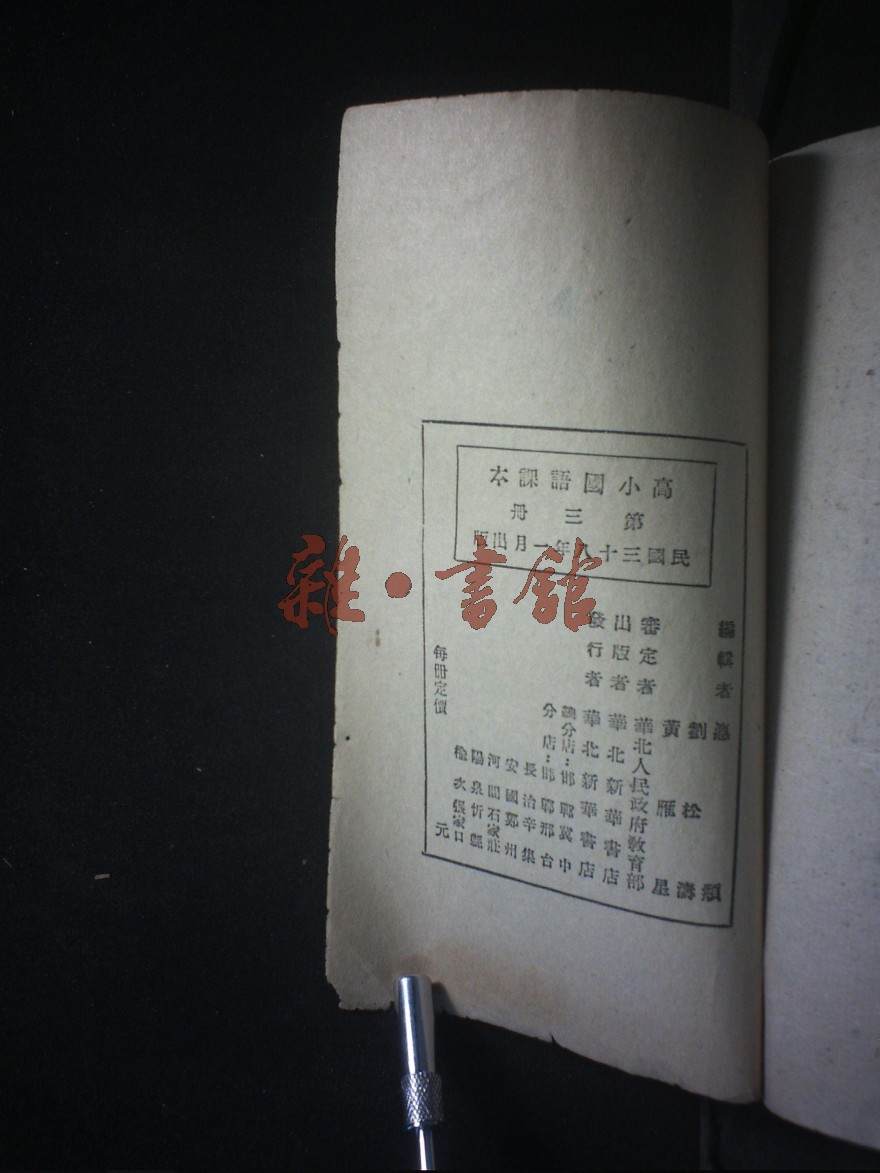 高小國語課本
第三冊
民國三十八年一月出版
編輯者
劉松濤
黃雁星
審定者 華北人民政府教育部
出版者 華北新華書店
發行者 華北新華書店
總分店：邯鄲 冀中
分店：邯鄲 邢台
長治 辛集
安國 鄭州
河間 石家莊
陽泉 忻縣
榆次 張家口
每冊定價 元
雜·書館